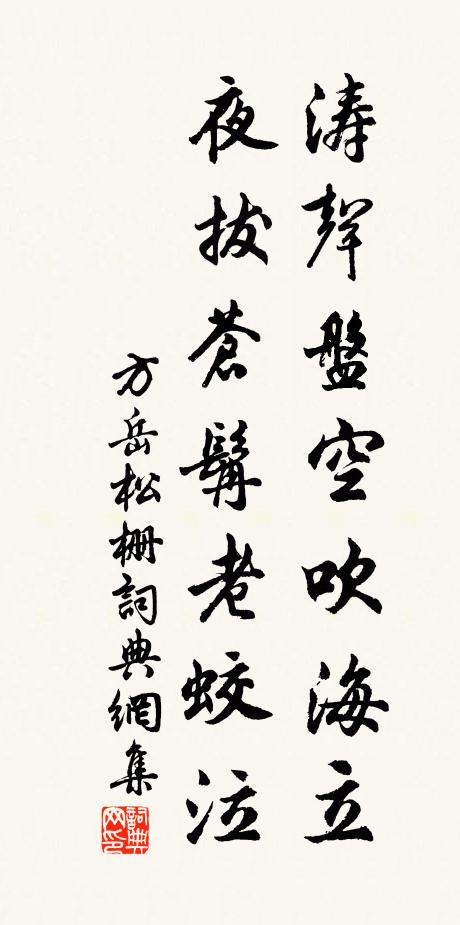 涛聲盤空吹海立
夜拔蒼髯老蛟泣
方岳松棚詞典網集
詞典网印